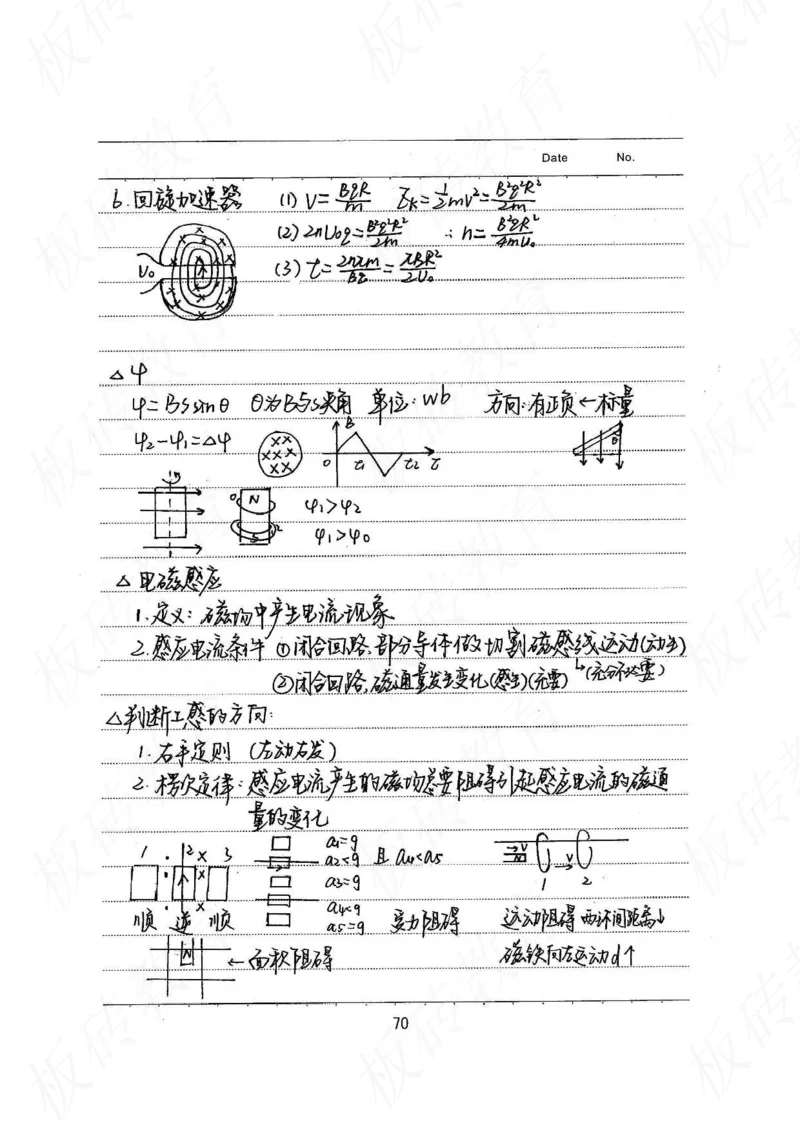 Date No.
6.回旋加速器 (1) V=BqR/m Ek=½mv²=B²q²R²/2m
(2) 2nU₀q=B²q²R²/2m ∴n=B²qR²/4mU₀
U₀ (3) t=2πnm/Bq=πBR²/2U₀
△φ
φ=BSsinθ θ为B与S夹角 单位:wb 方向:有正负←标量
φ₂-φ₁=△φ
B
0 t₁ t₂ t
θ
0 N φ₁>φ₂
S 2 φ₁>φ₀
△电磁感应
1.定义:磁场中产生电流现象
2.感应电流条件 ①闭合回路,部分导体做切割磁感线运动(动生)
↳(充分不必要)
②闭合回路,磁通量发生变化(感生)(充要)
△判断I感的方向:
1.右手定则 (左动右发)
2.楞次定律:感应电流产生的磁场总要阻碍引起感应电流的磁通
量的变化
1 2 3
a₁=g
a₂<g 且a₄<a₅
a₃=g
a₄<g
a₅=g 受力阻碍
顺 逆 顺
N V V
1 2
运动阻碍 两环间距离↓
N ←面积阻碍
磁铁向左运动d↑
70
板砖教育